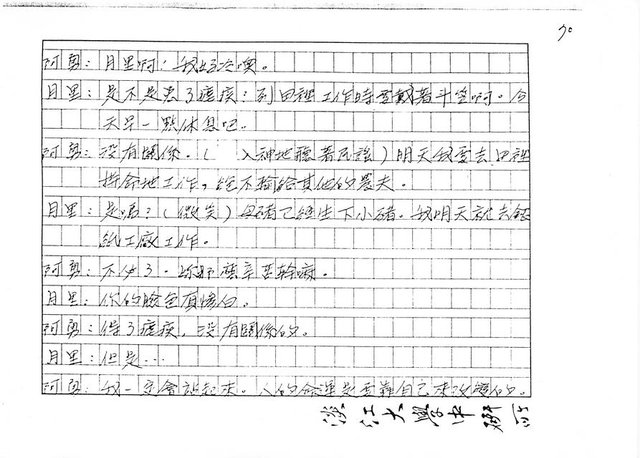 70
阿勇：月里啊！我好冷唷。
月里：是不是患了瘧疾？到田裡工作時要戴著斗笠啊。今
天早一點休息吧。
阿勇：沒有關係。（　入神地聽著民謠）明天我要去田裡
拼命地工作，絕不輸給其他的農夫。
月里：是嗎？（微笑）母豬已經生下小豬。我明天就去
紙工廠工作。
阿勇：不必了。你那麼辛苦幹嘛。
月里：你的臉色有夠白。
阿勇：得了瘧疾，沒有關係的。
月里：但是…
阿勇：我一定會站起來。人的命運是要靠自己來改變的。
淡江大學中研所